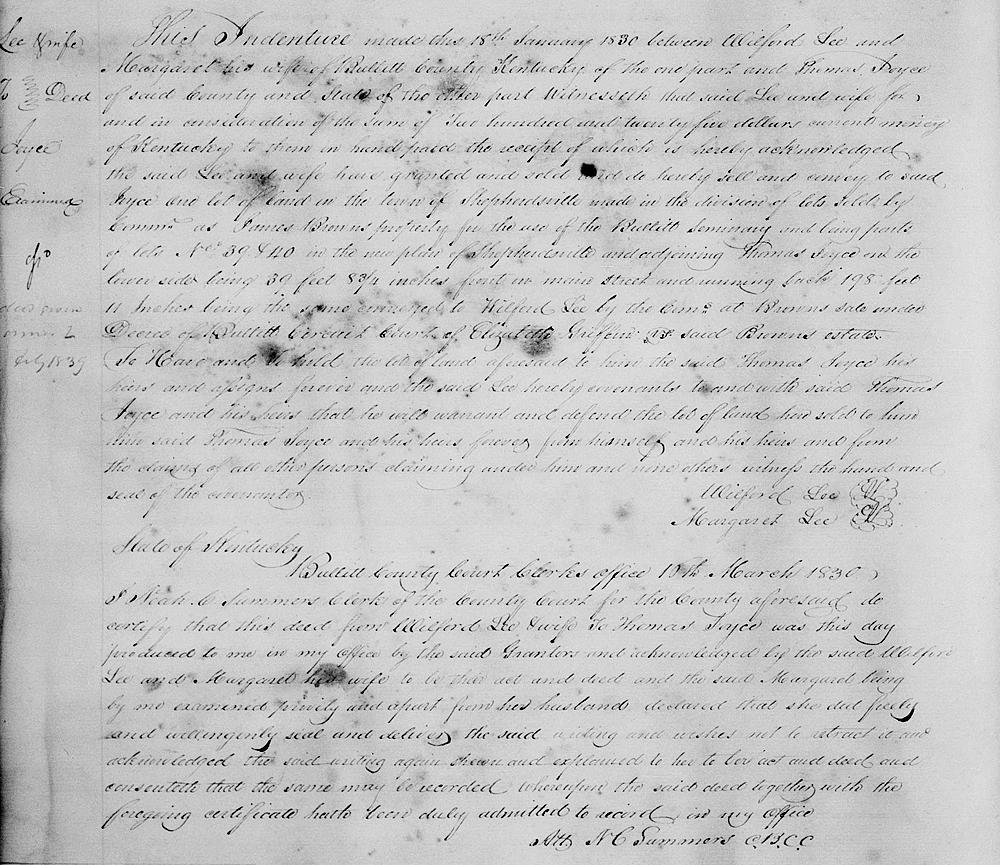 Lee & wife
To Deed
Joyce
Examined
July 1839
This Indenture made this 18th January 1830 between Wilford Lee and
Margaret his wife of Bullitt County Kentucky of the one part and Thomas Joyce
of said County and State of the other part Witnesseth that said Lee and wife for
and in consideration of the sum of Two hundred and twenty five dollars current money
of Kentucky to them in hand paid the receipt of which is hereby acknowledged
the said Lee and wife have granted and sold and do hereby sell and convey to said
Joyce one lot of land in the town of Shepherdsville made in the division of lots sold by
Commrs as James Browns property for the use of the Bullitt Seminary and being parts
of lots Nos 39 & 40 in the new plan of Shepherdsville and adjoining Thomas Joyce on the
lower side being 39 feet 8 3/4 inches front on main street and running back 198 feet
11 Inches being the same conveyed to Wilford Lee by the Comrs at Browns sale under
Decree of Bullitt Circuit Court of Elizabeth Griffin vs said Browns estate
To Have and to hold the lot of land aforesaid to him the said Thomas Joyce his
heirs and assigns forever and the said Lee hereby covenants to and with said Thomas
Joyce and his heirs that he will warrant and defend the lot of land here sold to him
him said Thomas Joyce and his heirs forever from himself and his heirs and from
the claims of all other persons claiming under him and none others witness the hand and
seal of the covenantor
Wilford Lee
Margaret Lee
State of Kentucky
Bullitt County Court Clerks office 18th March 1830
I Noah C Summers Clerk of the County Court for the County aforesaid do
certify that this deed from Wilford Lee & wife To Thomas Joyce was this day
produced to me in my office by the said Grantors and acknowledged by the said Wilford
Lee and Margaret his wife to be their act and deed and the said Margaret being
by me examined privily and apart from her husband declared that she did freely
and willingenly seal and deliver the said writing and wishes not to retract it and
acknowledged the said writing again shewn and explained to her to be her act and deed and
consenteth that the same may be recorded wherefore the said deed together with the
foregoing certificate hath been duly admitted to record in my office
Att N C Summers C.B.C.C